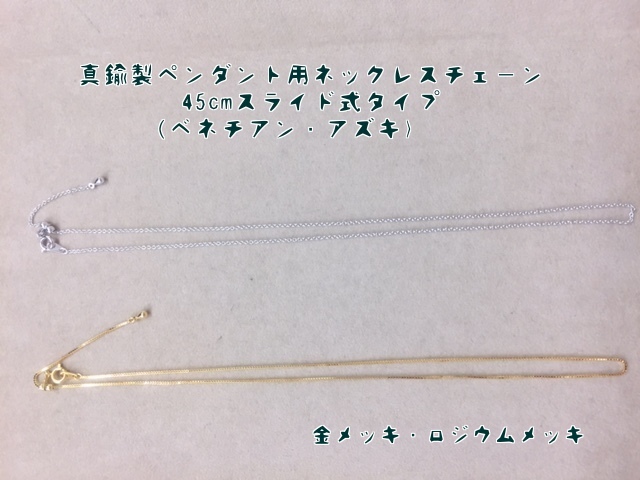 真鍮製ペンダント用ネックレスチェーン
45cmスライド式タイプ
(ベネチアン・アズキ)
金メッキ・ロジウムメッキ